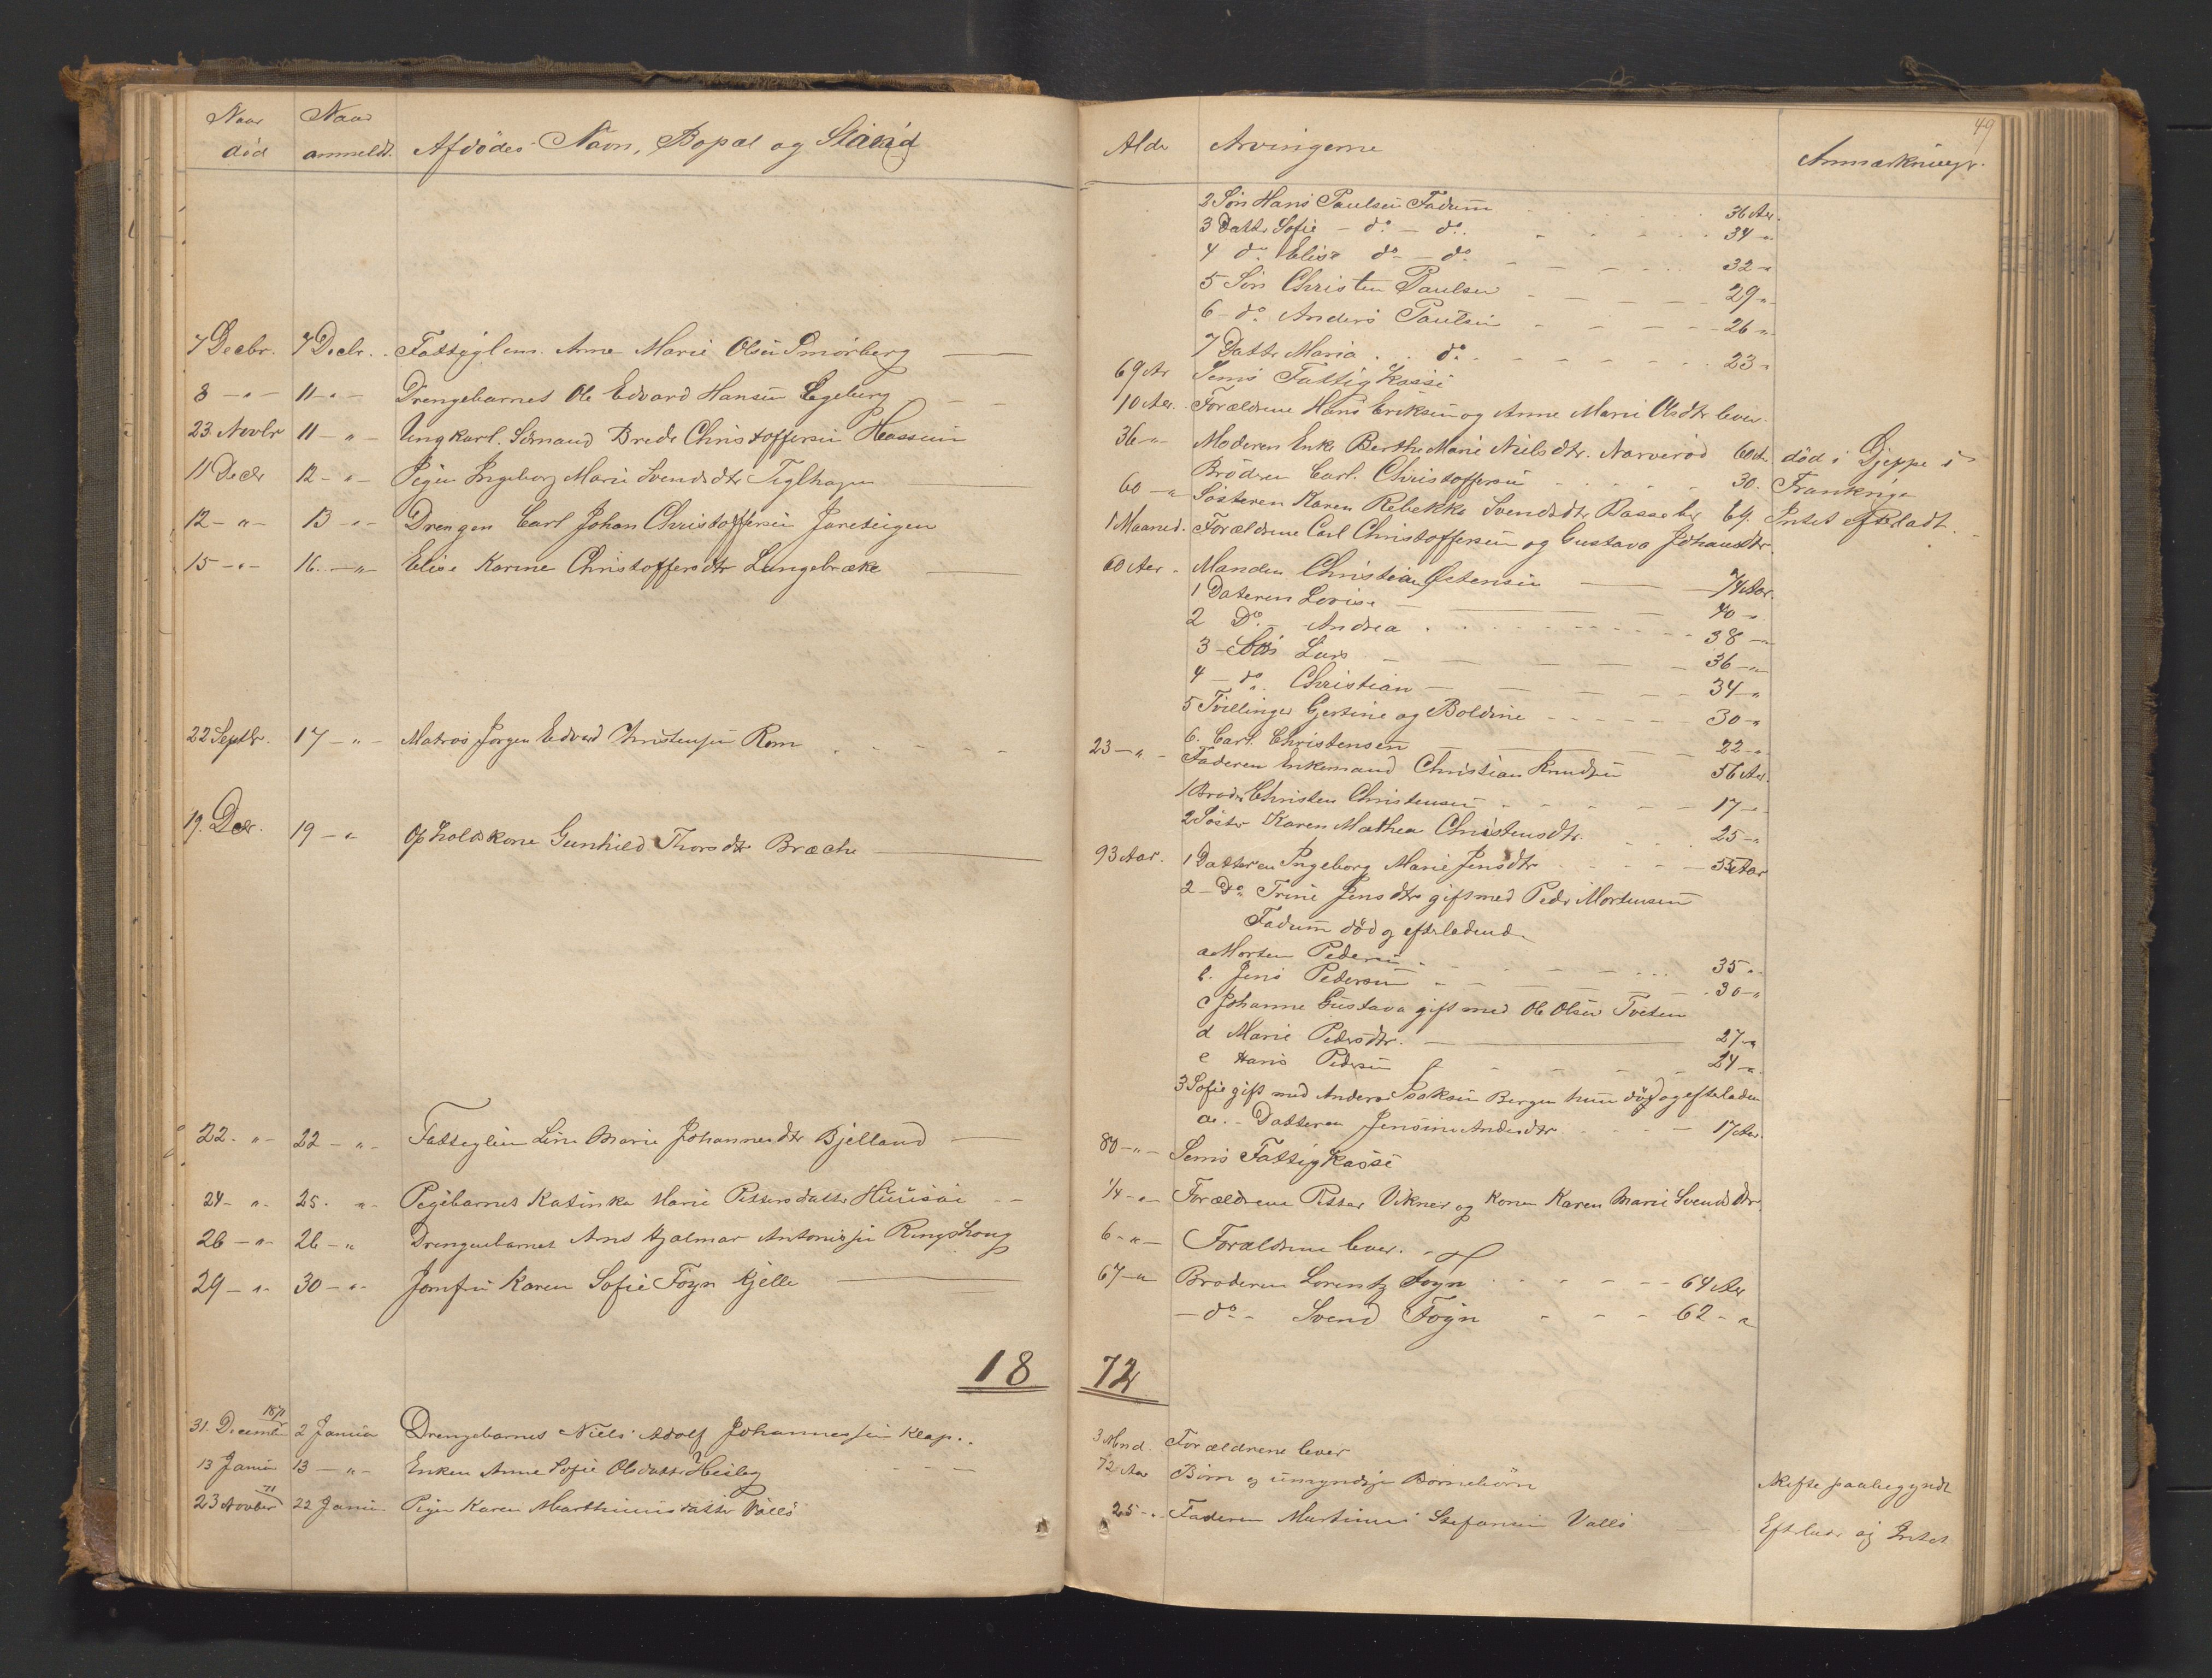 Naar død
Naar anmeldt.
Afdødes Navn, Bopæl og Stand
7 Decbr. 7 Decbr. Fattiglem. Anne Marie Olsen Smørberg
8 - " - 11 - " - Drengebarnet Ole Edvard Hansen Egeberg
23 Novbr 11 - " - Ungkarl. Sömand Brede Christoffersen Hassum
11 Decbr 12 - " - Pigen Ingeborg Marie Svendsdtr Teglhagen
12 - " - 13 - " - Drengen Carl Johan Christoffersen Jareteigen
15 - " - 16. - " - Elise Karine Christoffersdtr Langebrække
22 Septbr. 17 - " - Matros Jørgen Edvard Christensen Rom
19. Decbr. 19 - " Opholdskone Gunhild Thorsdtr Bræche
22. " - 22 - " - Fattiglem Line Marie Johannesdtr Bjelland
24 - " - 25. " - Pigebarnet Katinka Marie Pettersdatter Huusøe
26 - " - 26 - " Drengebarnet Arns Hjalmar Antonissen Ringshoug
29 - " - 30 - " - Jomfru Karen Sofie Fogn Kjelle
18
31. December 1871 2 Januar Drengebarnet Niels Adolf Johannessen Klop.
13 Januar 13 - " - Enken Anne Sofie Olsdatter Heisleg
23 November 71 22 Januar Pigen Karen Marthinusdatter Vallö
49
Alder
Arvingerne
Anmærkninger.
2 Søn Hans Paulsen Fadum 36 Aar.
3 Datter Sofie - do. - do. 34 "
4 do. Elise do - do 32 "
5 Søn Christen Paulsen 29 "
6 - do Anders Paulsen 26 "
7 Datter Maria do. 23 "
69 Aar Sems Fattigkasse
10 Aar. Forældrene Hans Eriksen og Anne Marie Olsdtr lever.
36 " Moderen Enke Berthe Marie Nielsdtr. Narverød 60 Aar død i Djeppe i
Broderen Carl Christoffersen 30. Frankrige
60 - " Søsteren Karen Rebekke Svendsdtr Basseber 69. Intet efterladt.
1 Maaned. Forældrene Carl Christoffersen og Gustava Johansdtr.
60 Aar - Manden Christian Østensen 74 Aar.
1 Dateren Lovise 40 "
2 Do. Andrea 38 "
3 - Søn Lars 36 "
4 - do. Christian 34 "
5 Tvillinger Gjertine og Boldine 30 "
6. Carl Christensen 22 "
23 - " - Faderen Enkemand Christian Knudsen 56 Aar.
1 Broder Christen Christensen 17 "
2 Søster Karen Mathea Christensdtr. 25 "
93 Aar. 1 Datteren Ingeborg Marie Jensdtr 55 Aar
2 - Do Trine Jensdtr gift med Peder Mortensen
Fadum død og efterladende
a Morten Pedersen 35 "
b. Jens Pedersen 30 "
c Johanne Gustava gift med Ole Olsen Tveten
d Marie Pedersdtr. 27 "
e Hans Pedersen 24 "
3 Sofie gift med Anders Isaksen Bergen hun død og efterladen
a. - Datteren Jensine Andersdtr 17 Aar.
80 - " - Sems Fattigkasse
1/4 - " - Forældrene Petter Vikner og Konen Karen Marie Svendsdtr
6 - " - Forældrene lever.
67 - " Broderen Lorentz Fogn 64 Aar
- do - Svend Fogn 62 - "
72
3 Mnd. Forældrene lever
72 Aar Börn og umyndige Børnebörn Skifte paabegyndt
25 - " - Faderen Martinus Stefansen Vallö Efterlader ej Intet